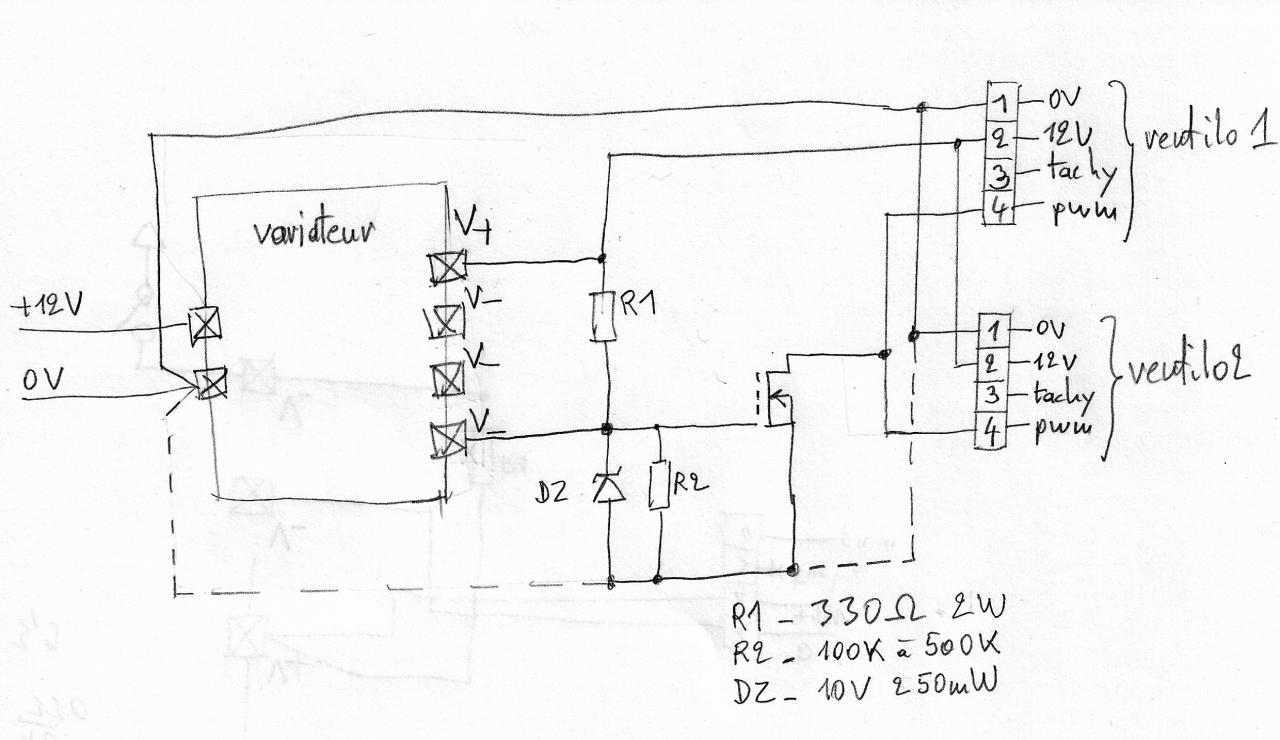 1 0V
2 12V
3 tachy
4 pwm
ventilo 1
variateur
V+
V-
V-
V-
+12V
0V
R1
1 0V
2 12V
3 tachy
4 pwm
ventilo2
DZ
R2
R1 - 330Ω 2W
R2 - 100K à 500K
DZ - 10V 250mW